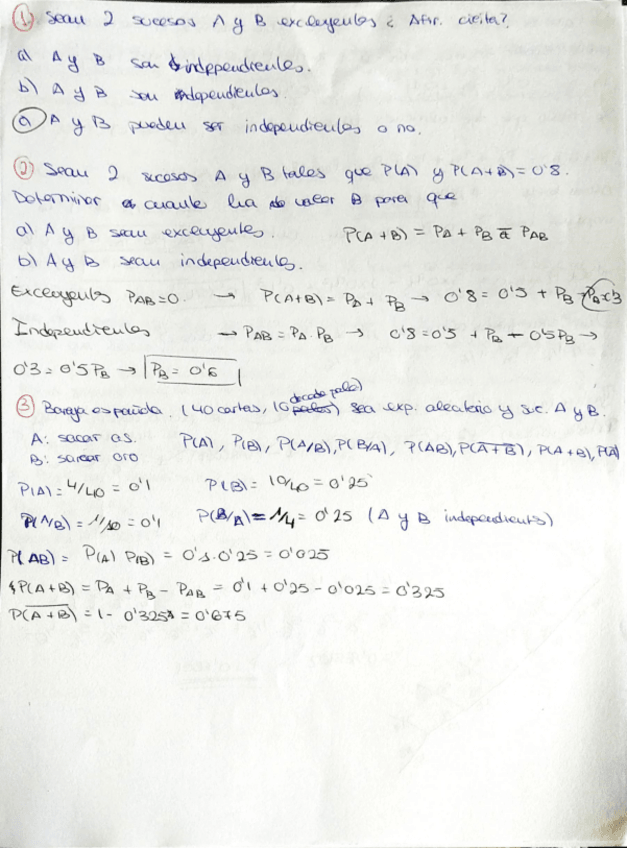 ① Sean 2 sucesos A y B excluyentes ¿ Afir. cierta?
a) A y B son independientes.
b) A y B son independientes.
c) A y B pueden ser independientes o no.
② Sean 2 sucesos A y B tales que P(A) y P(A+B)=0'8.
Determinar cuanto ha de valer B para que
a) A y B sean excluyentes. P(A+B) = PA + PB - PAB
b) A y B sean independientes.
Excluyentes PAB=0 → P(A+B) = PA + PB → 0'8 = 0'5 + PB
Independientes → PAB = PA·PB → 0'8=0'5 + PB - 0'5PB →
0'3 = 0'5PB → PB = 0'6
③ Baraja española. (40 cartas, 10 de cada palo) Sea exp. aleatorio y suc. A y B.
A: sacar as. P(A), P(B), P(A/B), P(B/A), P(AB), P(A+B), P(A+B), P(A)
B: sacar oro
P(A) = 4/40 = 0'1 P(B) = 10/40 = 0'25
P(A/B) = 1/10 = 0'1 P(B/A) = 1/4 = 0'25 (A y B independients)
P(AB) = P(A) P(B) = 0'1·0'25 = 0'025
P(A+B) = PA + PB - PAB = 0'1 + 0'25 - 0'025 = 0'325
P(A+B) = 1 - 0'325 = 0'675